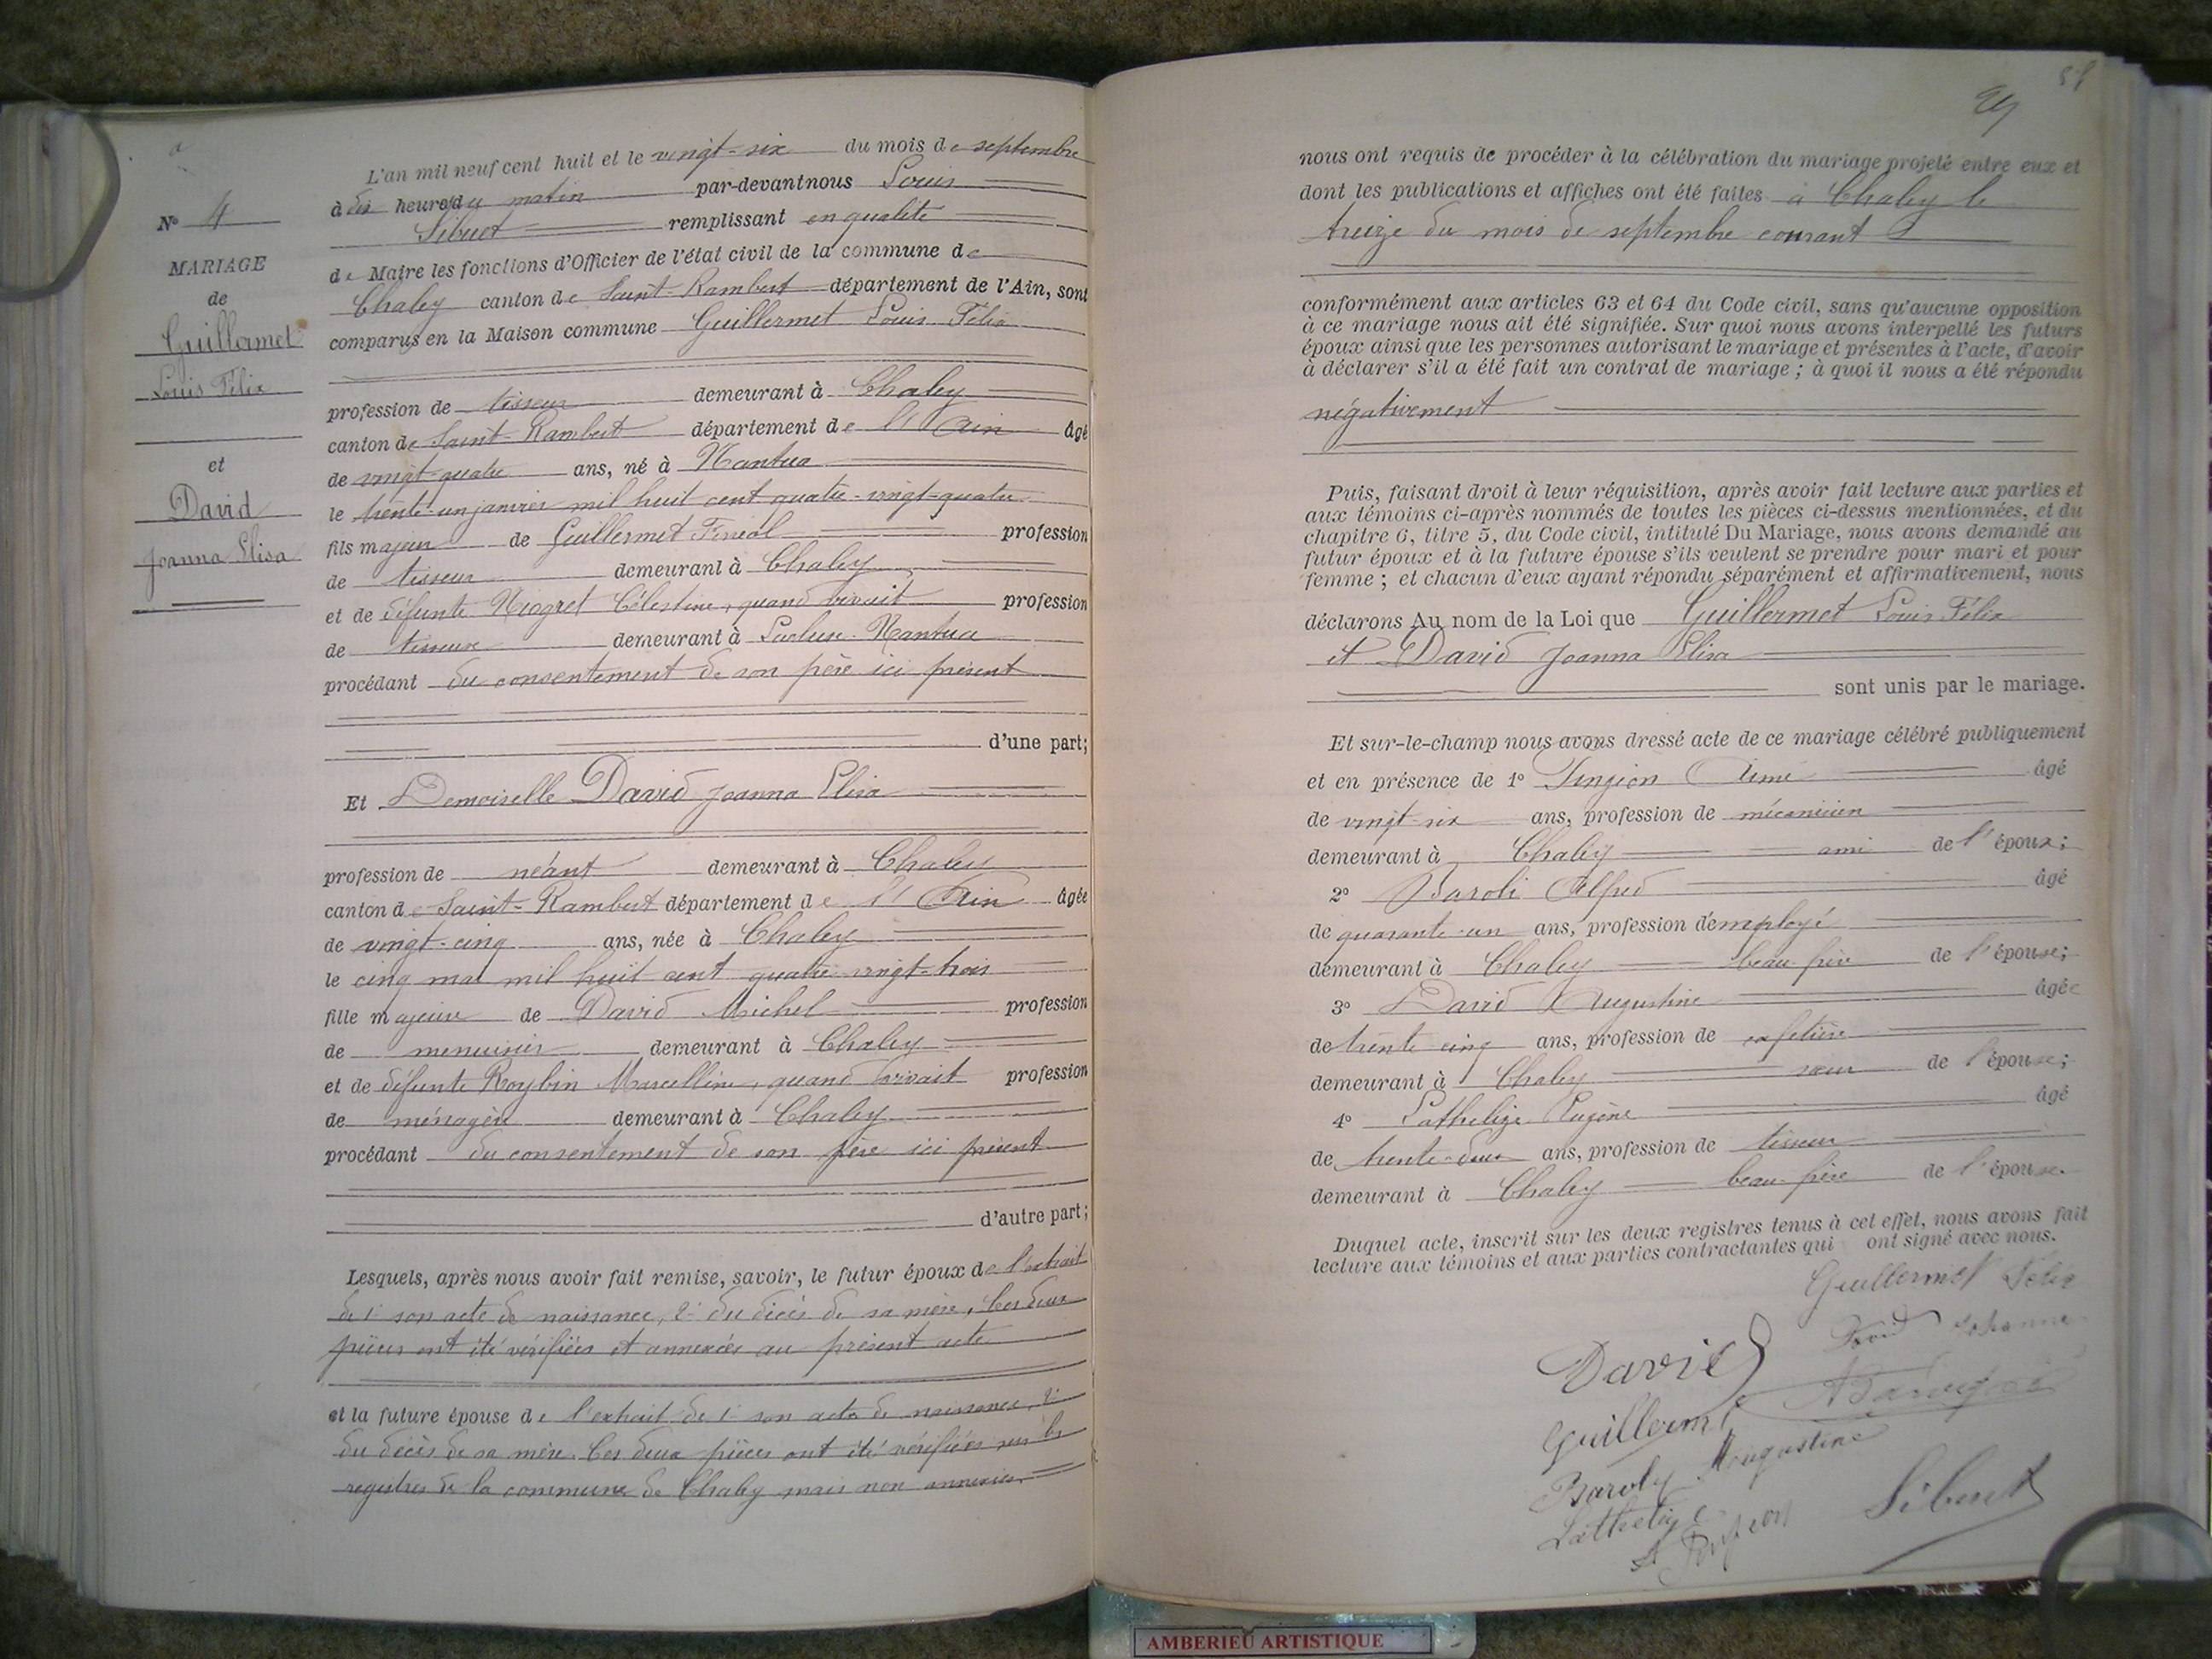 L'an mil neuf cent huit et le vingt-six du mois de septembre
à dix heures du matin par-devant nous Louis
Sibuet remplissant en qualité
de Maire les fonctions d'Officier de l'état civil de la commune de
Chaley canton de Saint-Rambert département de l'Ain, sont
comparus en la Maison commune Guillermet Louis Félix
profession de tisseur demeurant à Chaley
canton de Saint-Rambert département de l'Ain âgé
de vingt-quatre ans, né à Nantua
le trente-un janvier mil huit cent quatre-vingt-quatre
fils majeur de Guillermet Finéal profession
de tisseur demeurant à Chaley
et de défunte Niogret Célestine, quand vivait profession
de tisseuse demeurant à Nantua
procédant du consentement de son père ici présent
d'une part;
Et Demoiselle David Joanna Elisa
profession de néant demeurant à Chaley
canton de Saint-Rambert département de l'Ain âgée
de vingt-cinq ans, née à Chaley
le cinq mai mil huit cent quatre-vingt-trois
fille majeure de David Michel profession
de menuisier demeurant à Chaley
et de défunte Roybin Marcelline, quand vivait profession
de ménagère demeurant à Chaley
procédant du consentement de son père ici présent
d'autre part;
Lesquels, après nous avoir fait remise, savoir, le futur époux de l'extrait
de 1° son acte de naissance, 2° du décès de sa mère. Ces deux
pièces ont été vérifiées et annexées au présent acte
et la future épouse de l'extrait de 1° son acte de naissance, 2°
du décès de sa mère. Ces deux pièces ont été vérifiées sur les
registres de la commune de Chaley mais non annexées.
N° 4
MARIAGE
de
Guillermet
Louis Félix
et
David
Joanna Elisa
nous ont requis de procéder à la célébration du mariage projeté entre eux et
dont les publications et affiches ont été faites à Chaley le
treize du mois de septembre courant
conformément aux articles 63 et 64 du Code civil, sans qu'aucune opposition
à ce mariage nous ait été signifiée. Sur quoi nous avons interpellé les futurs
époux ainsi que les personnes autorisant le mariage et présentes à l'acte, d'avoir
à déclarer s'il a été fait un contrat de mariage ; à quoi il nous a été répondu
négativement
Puis, faisant droit à leur réquisition, après avoir fait lecture aux parties et
aux témoins ci-après nommés de toutes les pièces ci-dessus mentionnées, et du
chapitre 6, titre 5, du Code civil, intitulé Du Mariage, nous avons demandé au
futur époux et à la future épouse s'ils veulent se prendre pour mari et pour
femme ; et chacun d'eux ayant répondu séparément et affirmativement, nous
déclarons Au nom de la Loi que Guillermet Louis Félix
et David Joanna Elisa
sont unis par le mariage.
Et sur-le-champ nous avons dressé acte de ce mariage célébré publiquement
et en présence de 1° Aimé âgé
de vingt-six ans, profession de mécanicien
demeurant à Chaley ami de l'époux;
2° Baroli Alfred âgé
de quarante-un ans, profession d'employé
demeurant à Chaley beau-frère de l'épouse;
3° David Augustine âgée
de trente cinq ans, profession de cafetière
demeurant à Chaley soeur de l'épouse;
4° Lathelize Eugène âgé
de trente-deux ans, profession de tisseur
demeurant à Chaley beau-frère de l'épouse.
Duquel acte, inscrit sur les deux registres tenus à cet effet, nous avons fait
lecture aux témoins et aux parties contractantes qui ont signé avec nous.
Guillermet Félix
David
David Johanna
Guillermet
Baroly Augustine
Lathelize
Sibuet
AMBERIEU ARTISTIQUE